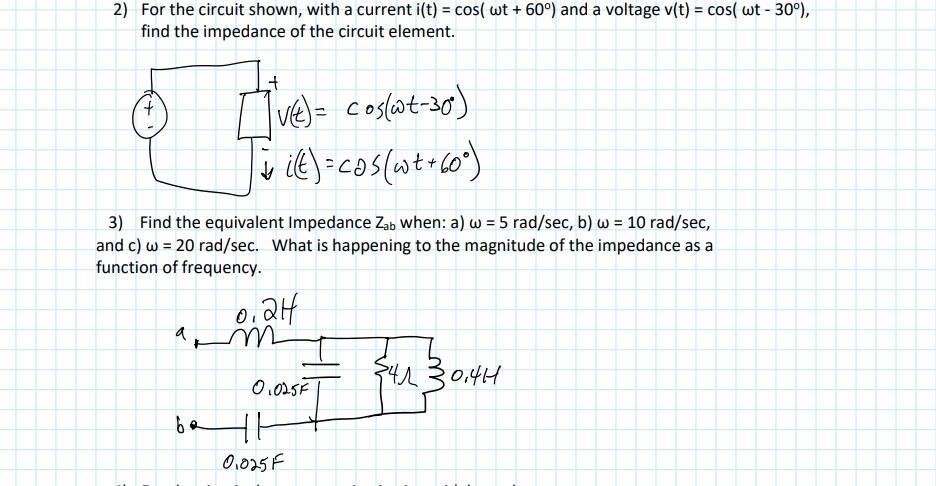 2) For the circuit shown, with a current i(t) = cos( ωt + 60º) and a voltage v(t) = cos( ωt - 30º),
find the impedance of the circuit element.
+
+
-
v(t) = cos(ωt-30°)
-
i(t) = cos(ωt+60°)
3) Find the equivalent Impedance Zab when: a) ω = 5 rad/sec, b) ω = 10 rad/sec,
and c) ω = 20 rad/sec. What is happening to the magnitude of the impedance as a
function of frequency.
0.2H
a
0.025F
4Ω
0.4H
b
0.025F